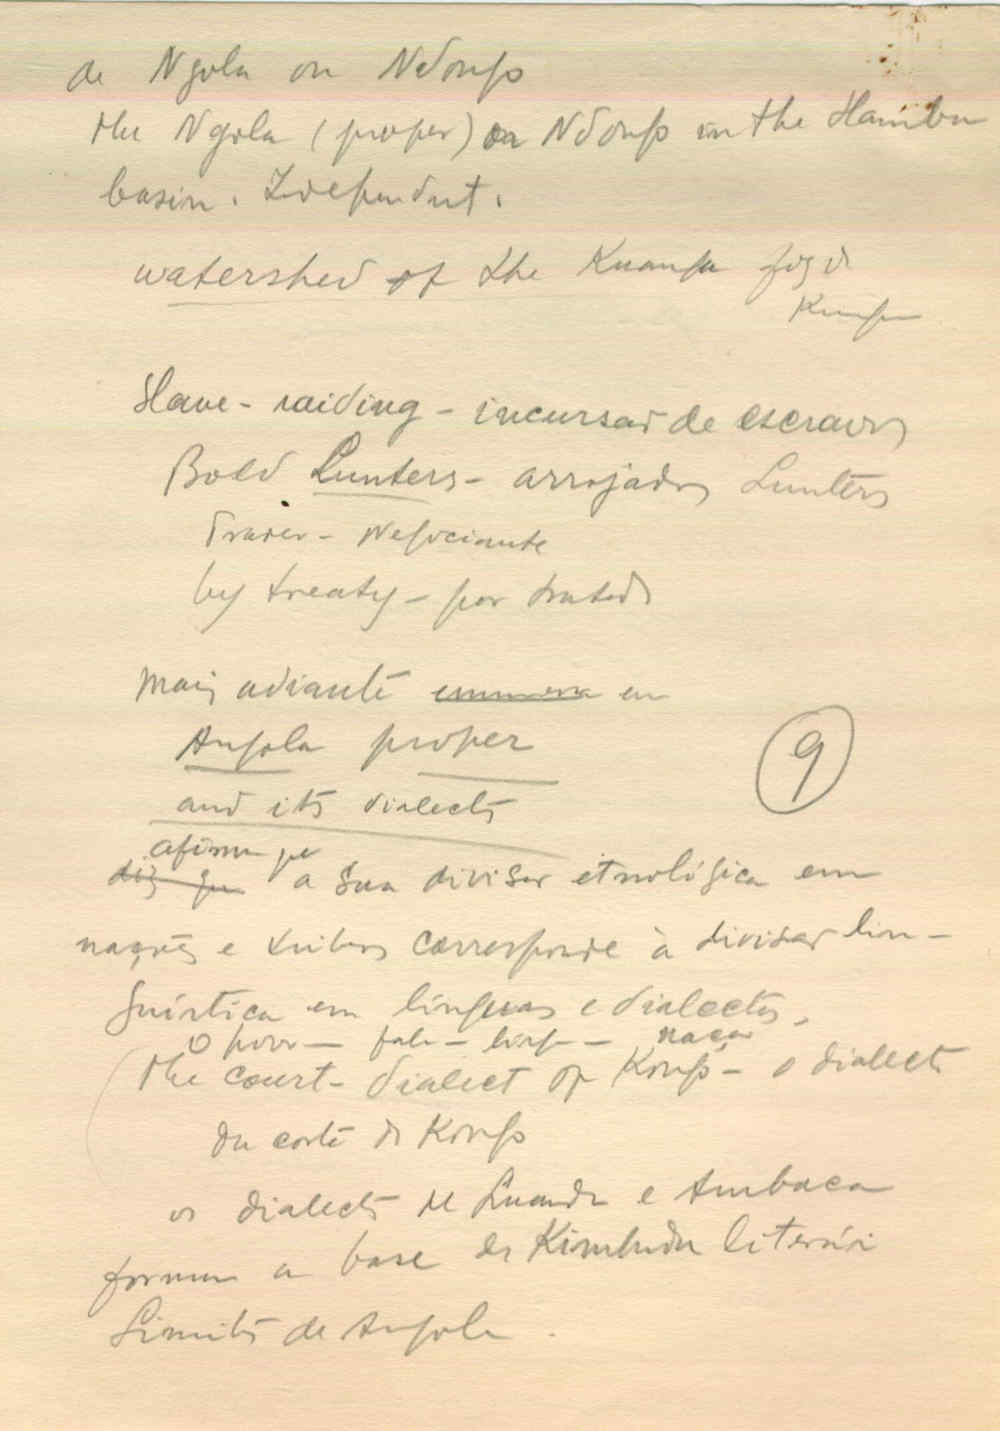 de Ngola ou Ndongo
the Ngola (proper) or Ndongo in the Hamba
basin. Independent.
watershed of the Kuanza
Slave-raiding - incursão de escravos
Bold Lunters - arrojados Lunters
Trader - Negociante
by treaty - por tratado
Mais adiante enumera em
Angola proper
9
and its dialects
afirma que
diz que a sua divisão etnológica em
nações e tribos corresponde à divisão lin-
guística em línguas e dialectos.
O povo - fala - língua - nação
the court-dialect of Kongo - o dialecto
da corte do Kongo
os dialectos de Luanda e Ambaca
formam a base do Kimbundu literário
Limites de Angola.